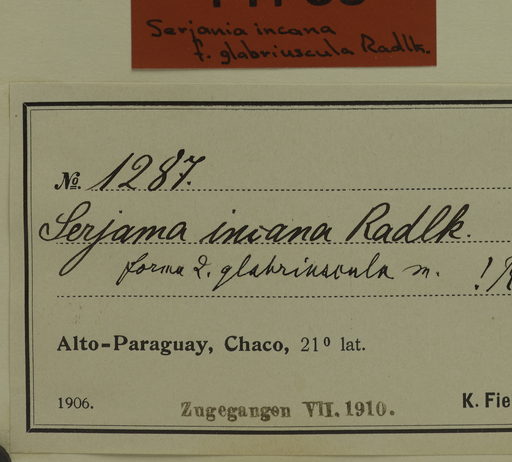 Serjania incana
f. glabriuscula Radlk.
№ 1287.
Serjania incana Radlk.
forma 2. glabriuscula m. !
Alto-Paraguay, Chaco, 21º lat.
1906. Zugegangen VII. 1910. K. Fie